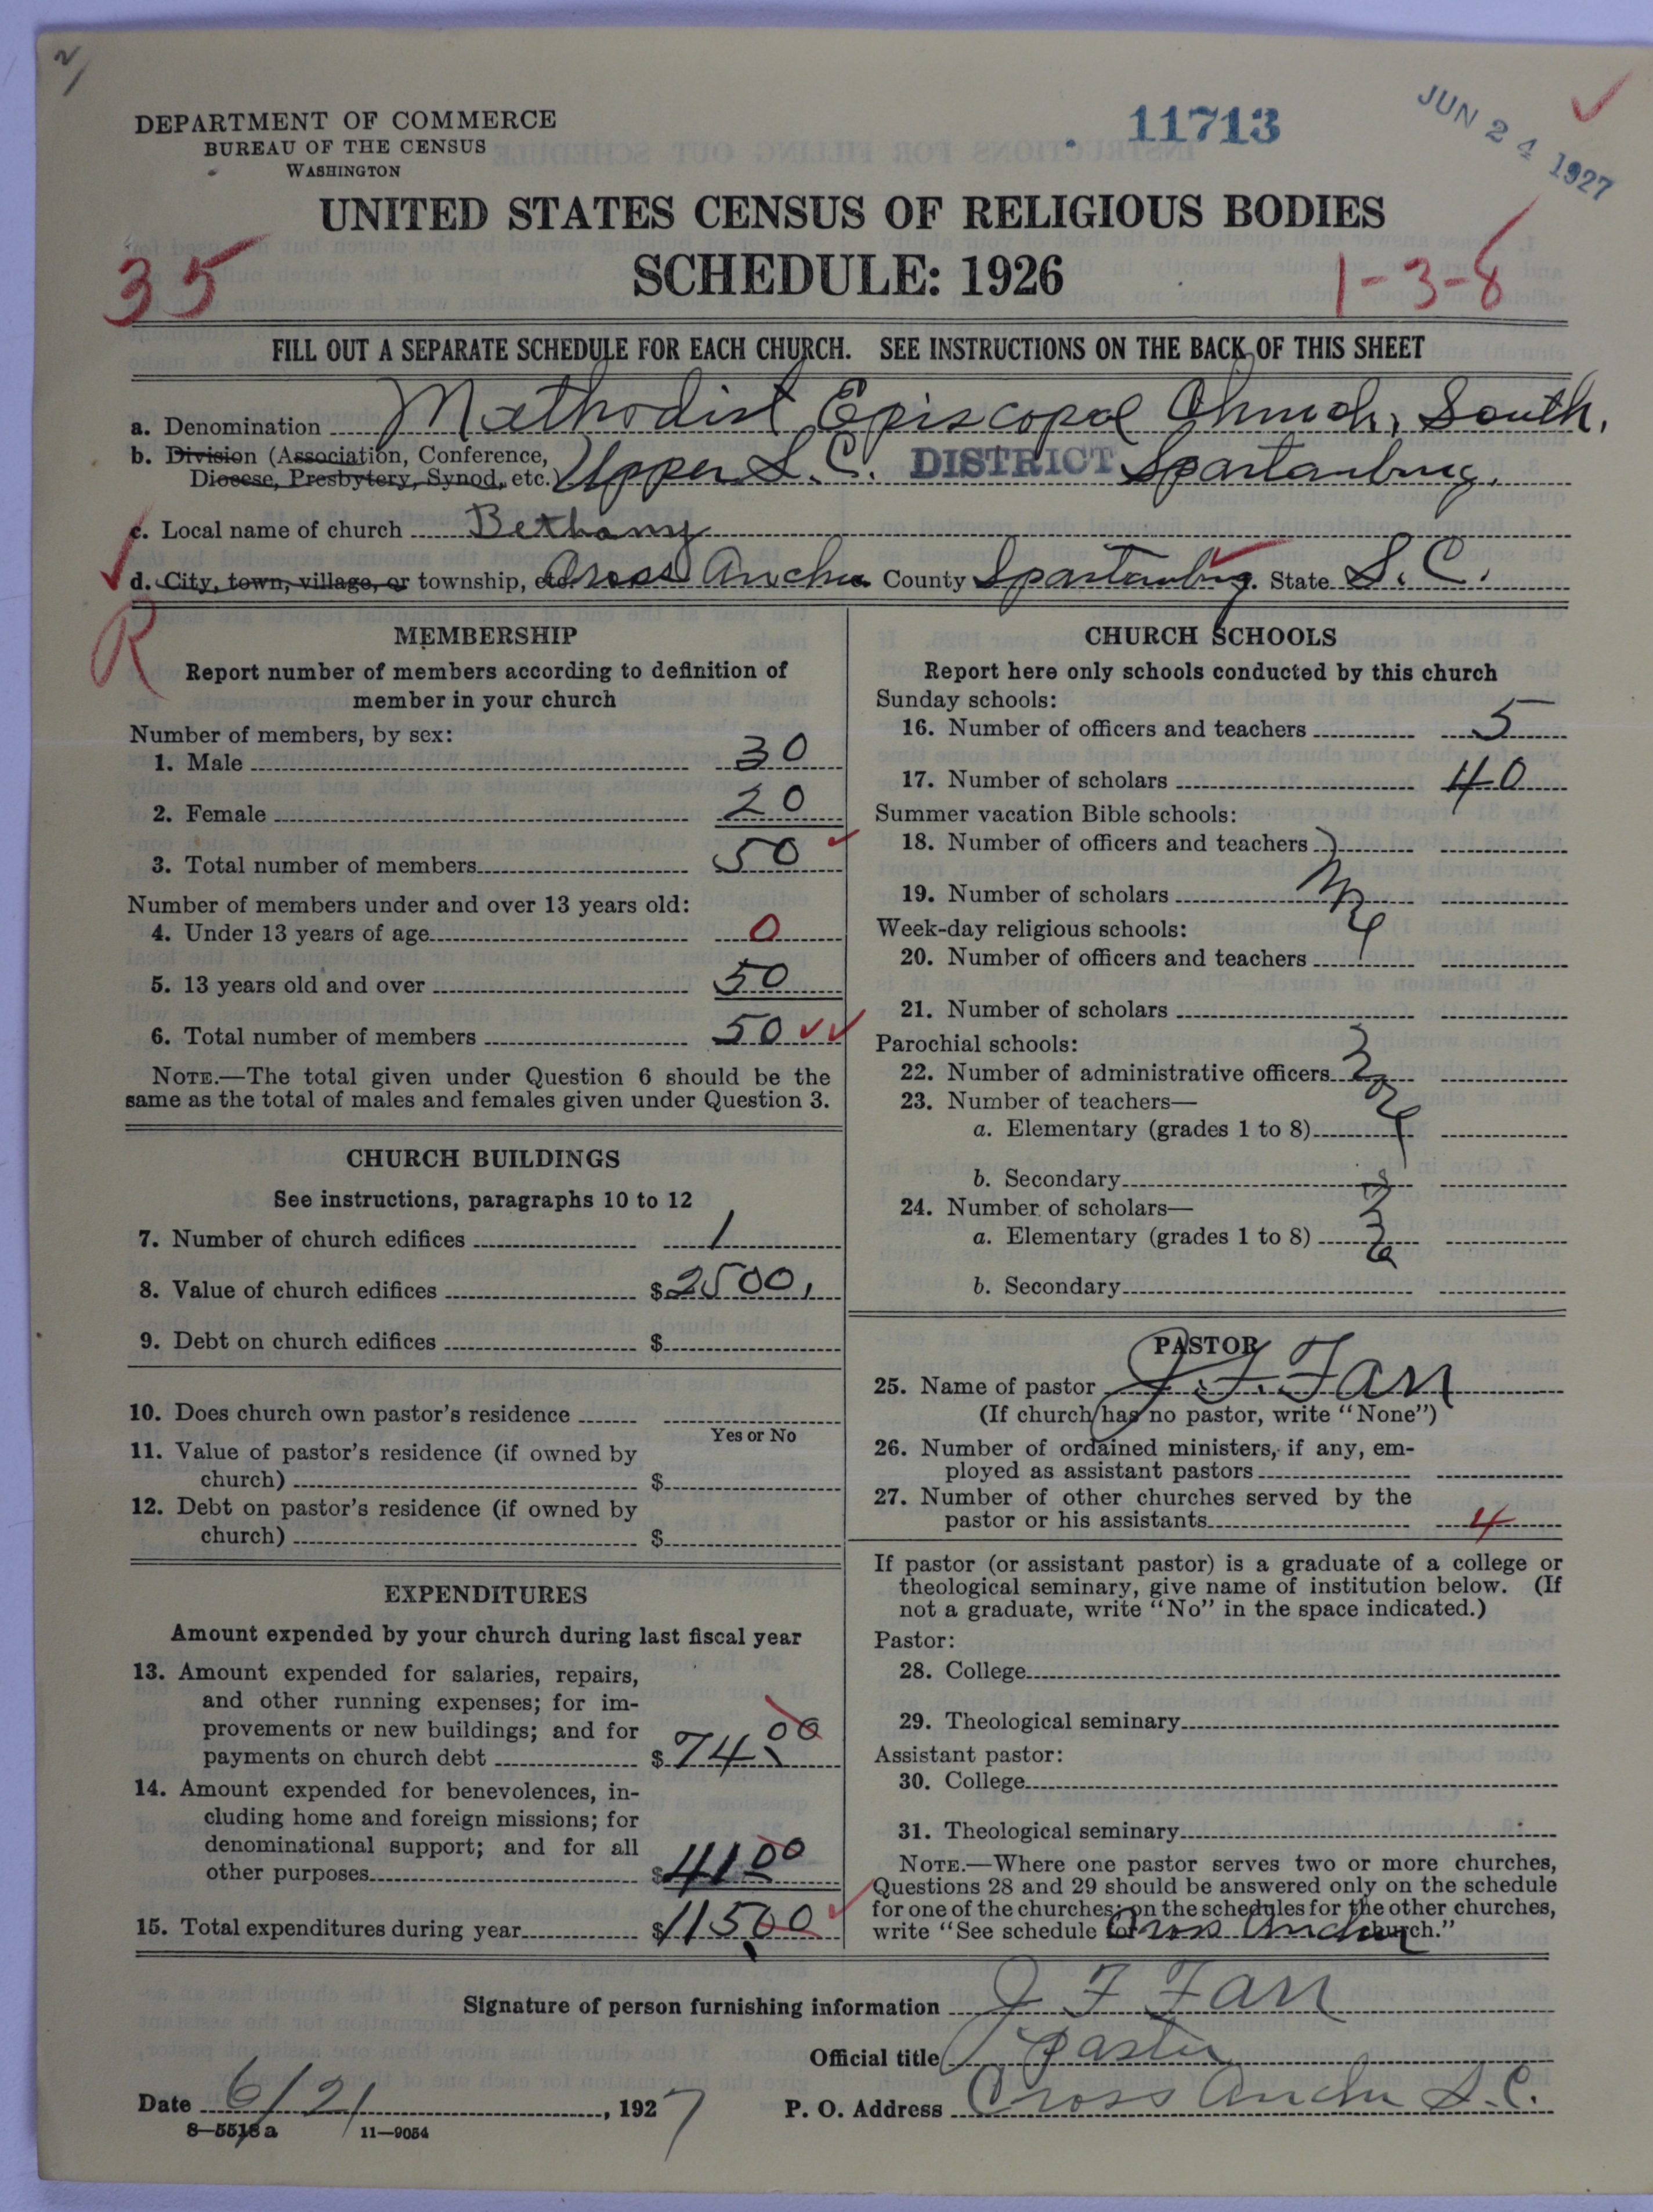 2/
DEPARTMENT OF COMMERCE
BUREAU OF THE CENSUS
WASHINGTON
11713
JUN 24 1927
UNITED STATES CENSUS OF RELIGIOUS BODIES
SCHEDULE: 1926
35
1-3-8
FILL OUT A SEPARATE SCHEDULE FOR EACH CHURCH. SEE INSTRUCTIONS ON THE BACK OF THIS SHEET
a. Denomination Methodist Episcopal Church, South.
b. Division (Association, Conference,
Diocese, Presbytery, Synod, etc.) Upper S. C. DISTRICT Spartanburg.
c. Local name of church Bethany
d. City, town, village, or township, etc. Cross Anchor County Spartanburg. State S. C.
R
MEMBERSHIP
Report number of members according to definition of
member in your church
Number of members, by sex:
1. Male 30
2. Female 20
3. Total number of members 50
Number of members under and over 13 years old:
4. Under 13 years of age 0
5. 13 years old and over 50
6. Total number of members 50
NOTE.—The total given under Question 6 should be the
same as the total of males and females given under Question 3.
CHURCH BUILDINGS
See instructions, paragraphs 10 to 12
7. Number of church edifices 1
8. Value of church edifices $2500.
9. Debt on church edifices $
10. Does church own pastor's residence
Yes or No
11. Value of pastor's residence (if owned by
church) $
12. Debt on pastor's residence (if owned by
church) $
EXPENDITURES
Amount expended by your church during last fiscal year
13. Amount expended for salaries, repairs,
and other running expenses; for im-
provements or new buildings; and for
payments on church debt $74.00
14. Amount expended for benevolences, in-
cluding home and foreign missions; for
denominational support; and for all
other purposes $41.00
15. Total expenditures during year $115.00
CHURCH SCHOOLS
Report here only schools conducted by this church
Sunday schools:
16. Number of officers and teachers 5
17. Number of scholars 40
Summer vacation Bible schools:
18. Number of officers and teachers
19. Number of scholars
Week-day religious schools:
20. Number of officers and teachers
21. Number of scholars
Parochial schools:
22. Number of administrative officers
23. Number of teachers—
a. Elementary (grades 1 to 8)
b. Secondary
24. Number of scholars—
a. Elementary (grades 1 to 8)
b. Secondary
PASTOR
25. Name of pastor J. F. Farr
(If church has no pastor, write "None")
26. Number of ordained ministers, if any, em-
ployed as assistant pastors
27. Number of other churches served by the
pastor or his assistants 4
If pastor (or assistant pastor) is a graduate of a college or
theological seminary, give name of institution below. (If
not a graduate, write "No" in the space indicated.)
Pastor:
28. College
29. Theological seminary
Assistant pastor:
30. College
31. Theological seminary
NOTE.—Where one pastor serves two or more churches,
Questions 28 and 29 should be answered only on the schedule
for one of the churches; on the schedules for the other churches,
write "See schedule for Cross Anchor church."
Signature of person furnishing information J F Farr
Official title pastor
Date 6/21, 1927
P. O. Address Cross Anchor S. C.
8—5518 a 11—9054